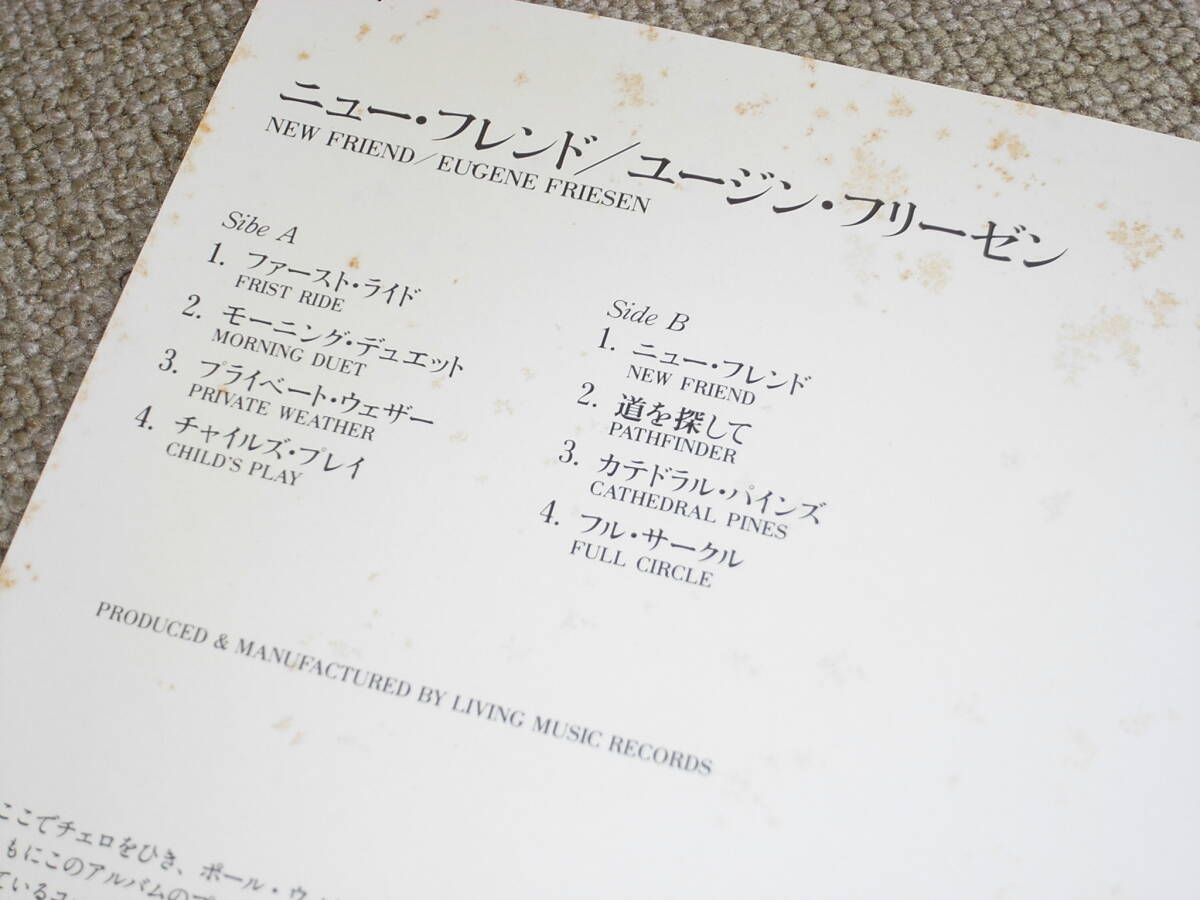 ニュー・フレンド/ユージン・フリーゼン
NEW FRIEND/EUGENE FRIESEN
Sibe A
1. ファースト・ライド
FRIST RIDE
2. モーニング・デュエット
MORNING DUET
3. プライベート・ウェザー
PRIVATE WEATHER
4. チャイルズ・プレイ
CHILD'S PLAY
Side B
1. ニュー・フレンド
NEW FRIEND
2. 道を探して
PATHFINDER
3. カテドラル・パインズ
CATHEDRAL PINES
4. フル・サークル
FULL CIRCLE
PRODUCED & MANUFACTURED BY LIVING MUSIC RECORDS
ここでチェロをひき、ポール・ウ
もにこのアルバムのプ
ているユ